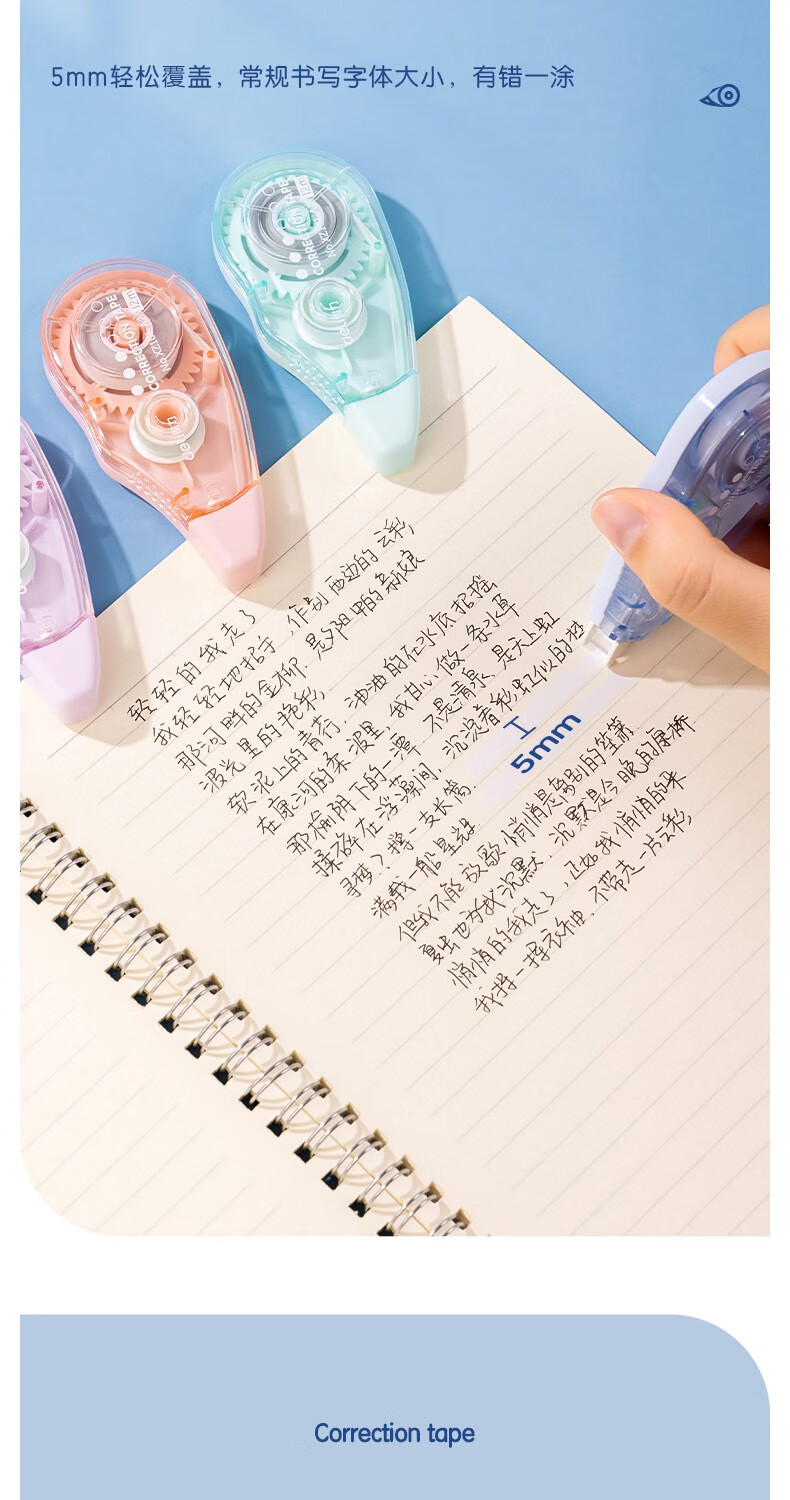 5mm轻松覆盖，常规书写字体大小，有错一涂
CORRECTION TAPE
CORRECTION TAPE
轻轻的我走了
我轻轻地招手 作别西边的云彩
那河畔的金柳 是夕阳中的新娘
波光里的艳影
软泥上的青荇，油油的在水底招摇
在康河的柔波里 我甘心做一条水草
那榆阴下的一潭 不是清泉 是天上虹
揉碎在浮藻间 沉淀着彩虹似的梦
寻梦？撑一支长篙
满载一船星辉
但我不能放歌 悄悄是离别的笙箫
夏虫也为我沉默 沉默是今晚的康桥
悄悄的我走了，正如我悄悄的来
我挥一挥衣袖，不带走一片云彩
5mm
Correction tape